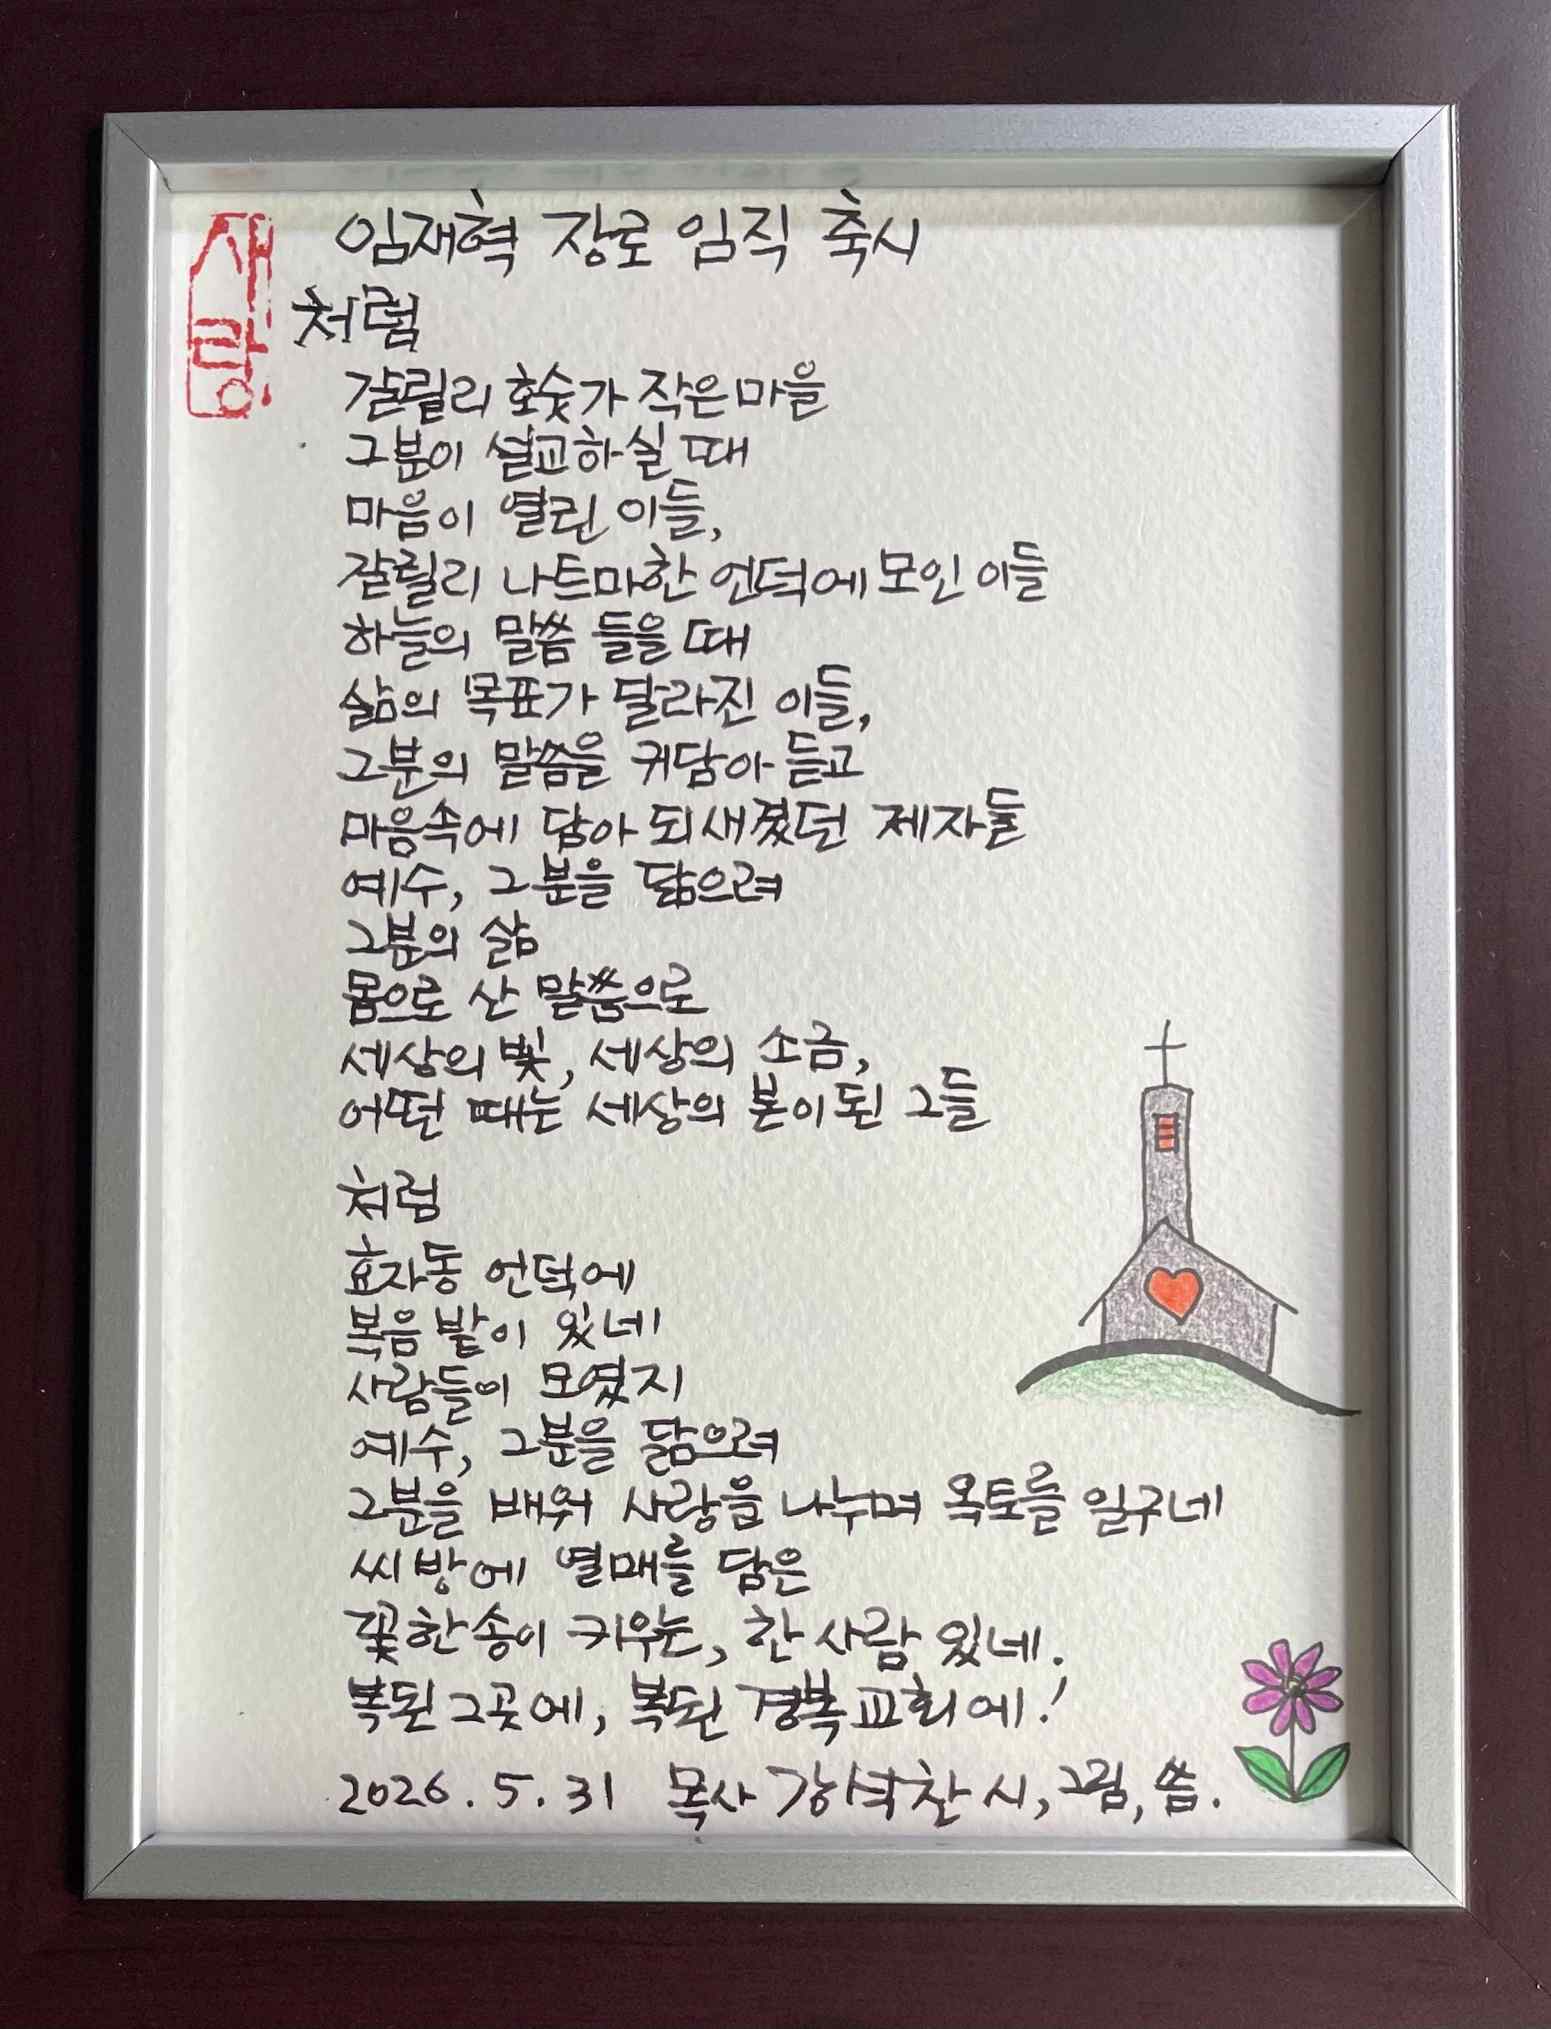 사랑
임재혁 장로 임직 축시
처럼
갈릴리 호숫가 작은 마을
그분이 설교하실 때
마음이 열린 이들,
갈릴리 나트마한 언덕에 모인 이들
하늘의 말씀 들을 때
삶의 목표가 달라진 이들,
그분의 말씀을 귀담아 듣고
마음속에 담아 되새겼던 제자들
예수, 그분을 닮으려
그분의 삶
몸으로 산 말씀으로
세상의 빛, 세상의 소금,
어떤 때는 세상의 본이 된 그들
처럼
효자동 언덕에
복음 밭이 있네
사람들이 모였지
예수, 그분을 닮으려
그분을 배워 사랑을 나누며 옥토를 일구네
씨방에 열매를 담은
꽃 한 송이 키우는, 한 사람 있네.
복된 그곳에, 복된 경복교회에!
2026. 5. 31 목사 강석찬 시, 그림, 씀.